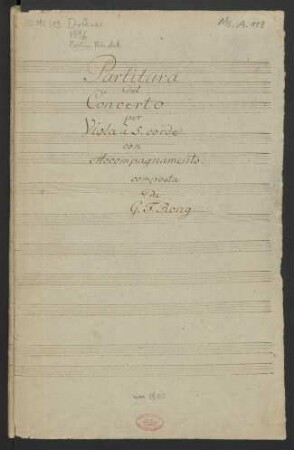 Ms. A. 118
Partitura
del
Concerto
per
Viola à 5. corde
con
Accompagnamento
composta
da
G. F. Rong
um 1800